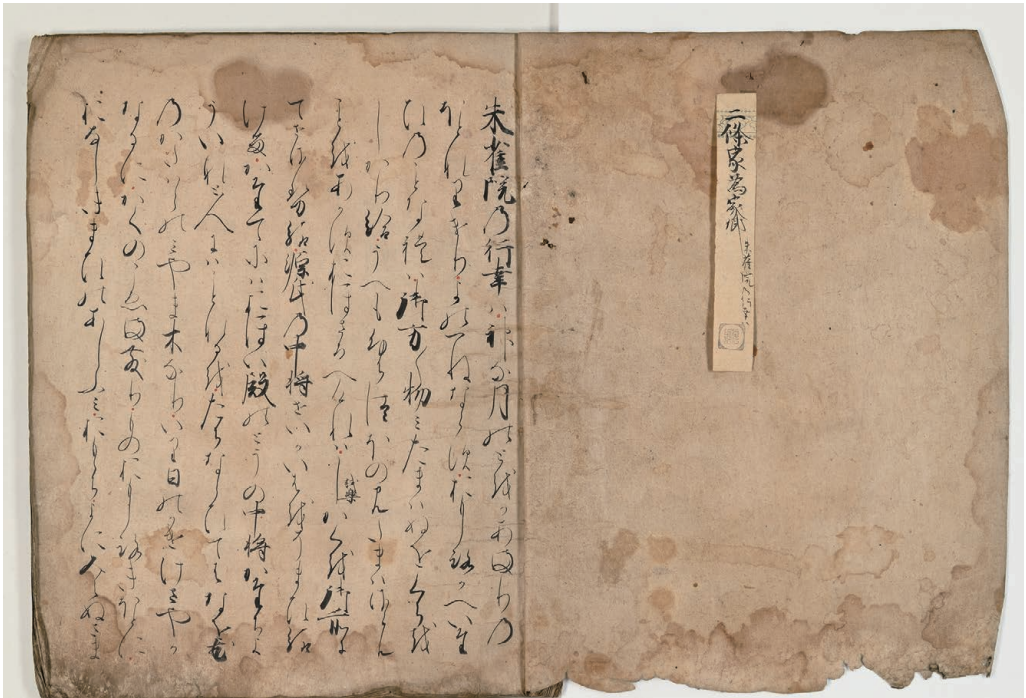 二條家為家卿 朱雀院の行幸は
朱雀院の行幸は神な月の とをかあまりの
ほとなりけりよのつねならすおもしろかへいた
ひのことなれは御方〱物みたまはぬをくちを
しかり給うへもふちつほのみたまはさらん
ことをあかすおほさるへけれはしかくを御前に
試樂
てせさせ給源氏の中将せいかいはをそまひ給
けるかたてにはおほい殿のとうの中将かたちよ
ういひとにはことなるをたちならひてはなを花
のかたはらのみやま木なりいり日のかけさやか
なるにかくのこゑまさりものおもしろきほとに
におなしまひのあしふみおももちよにみえぬさま